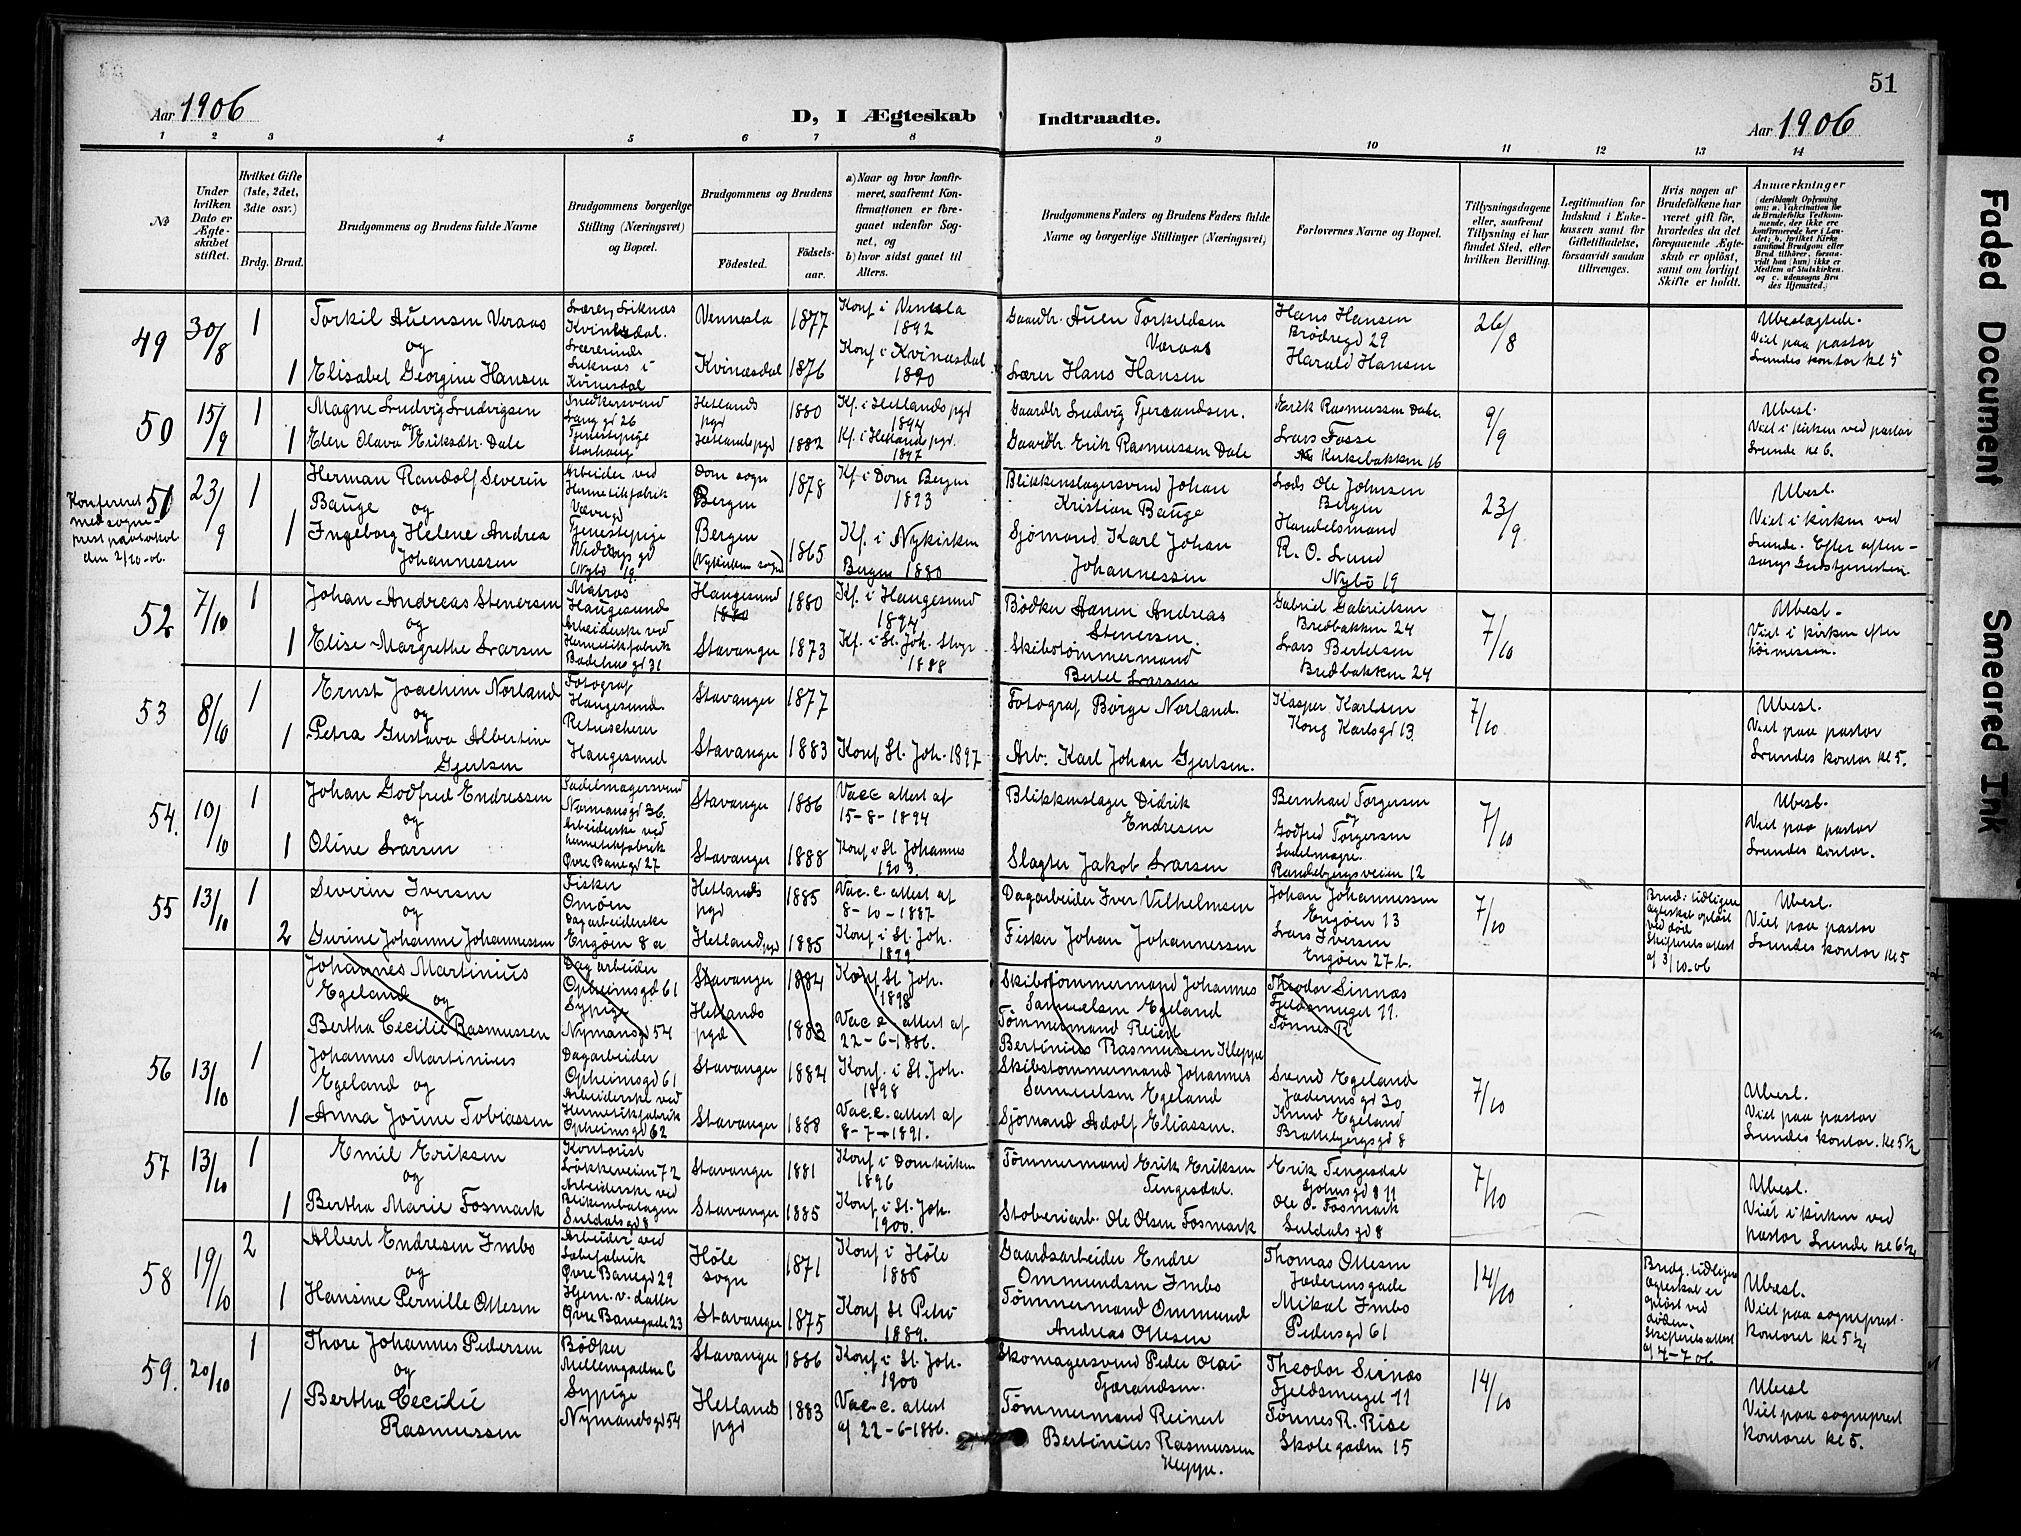 51
Aar 1906
D, I Ægteskab Indtraadte.
Aar 1906
1 2 3 4 5 6 7 8 9 10 11 12 13 14
№
Under hvilken Dato er Ægteskabet stiftet.
Hvilket Gifte (1ste, 2det, 3die osv.)
Brdg. Brud.
Brudgommens og Brudens fulde Navne
Brudgommens borgerlige Stilling (Næringsvei) og Bopæl.
Brudgommens og Brudens
Födested.
Födsels-aar.
a) Naar og hvor konfirmeret, saafremt Konfirmationen er foregaaet udenfor Sognet, og
b) hvor sidst gaaet til Alters.
Brudgommens Faders og Brudens Faders fulde Navne og borgerlige Stillinger (Næringsvei)
Forlovernes Navne og Bopæl.
Tillysningsdagene eller, saafremt Tillysning ei har fundet Sted, efter hvilken Bevilling.
Legitimation for Indskud i Enkekassen samt for Giftetilladelse, forsaavidt saadan tiltrænges.
Hvis nogen af Brudefolkene har været gift för, hvorledes da det foregaaende Ægteskab er oplöst, samt om lovligt Skifte er holdt.
Anmerkninger
49
30/8
1
Torkil Auensen Veraas
og
1 Elisabet Georgine Hansen
Lærer, Liknæs
Kvinesdal.
Lærerinde
Liknæs i
Kvinesdal
Vennesla 1877
Kvinesdal 1876
Konf i Venesla
1892
Konf i Kvinesdal
1890
Gaardbr. Auen Torkildsen
Veraas
Lærer Hans Hansen
Hans Hansen
Brödregd 29
Harald Hansen
26/8
Ubeslægtede.
Viet paa pastor
Lundes kontor kl 5
50
15/9
1
Magne Ludvig Ludvigsen
og
1 Elen Olava Eriksdtr. Dale
Snedkersvend
Langgd 26
Tjenestepige
Storhaug
Hetlands
pgd 1880
Hetlands pgd 1882
Kf. i Hetlands pgd
1894
Kf. i Hetland pgd.
1897
Gaardbr Ludvig Tjerandsen.
Gaardbr. Erik Rasmussen Dale
Erik Rasmussen Dale.
Lars Fosse
Kirkebakken 16
9/9
Ubesl.
Viet i kirken ved pastor
Lunde kl 6.
Konfereret
med sogne-
prest protokol
den 2/10-06.
51
23/9
1
Herman Randolf Severin
Bauge og
1 Ingeborg Helene Andrea
Johannessen
Arbeider ved
Hermetikfabrik
Tjenestepige
Nybö 19.
Dom sogn
Bergen 1878
Bergen
(Nykirken sogn) 1865
Kf. i Dom Bergen
1893
Kf. i Nykirken
Bergen 1880
Blikkenslagersvend Johan
Kristian Bauge
Sjömand Karl Johan
Johannessen
Lods Ole Johnsen
Bergen
Handelsmand
R. O. Lund
Nybö 19
23/9
Ubesl.
Viet i kirken ved
Lunde. Efter aften-
sangs Gudstjenesten.
52
7/10
1
Johan Andreas Stenersen
og
1 Elise Margrethe Larsen
Matros
Haugesund
Arbeiderske ved
Hermetikfabrik
Badehusgd 31
Haugesund 1880
1880
Stavanger 1873
Kf. i Haugesund
1894
Kf. i St. Joh. Stvgr
1888
Bödker Aanen Andreas
Stenersen.
Skibstömmermand
Bertel Larsen
Gabriel Gabrielsen
Bredbakken 24
Lars Bertelsen
Bredbakken 24
7/10
Ubesl.
Viet i kirken efter
höimessen.
53
8/10
1
Ernst Joachim Norland
og
1 Petra Gustava Albertine
Gjertsen
Fotograf
Haugesund.
Retuscherer
Haugesund
Stavanger 1877
Stavanger 1883
Konf St. Joh. 1897
Fotograf Börge Norland.
Arb. Karl Johan Gjertsen.
Kasper Karlsen
Kong Karlsgd 13
7/10
Ubesl.
Viet paa pastor
Lundes kontor kl 5.
54.
10/10
1
Johan Godfred Endressen
og
1 Oline Larsen
Sadelmagersvend
Normansgd 36.
Arbeiderske ved
hermetikfabrik
Övre Banegd 27
Stavanger 1886
Stavanger 1888
Vacc attest af
15-8-1894
Konf i St. Johannes
1903.
Blikkenslager Didrik
Endresen
Slagter Jakob Larsen
Bernhard Torgersen
og
Godfred Torgersen
Sadelmager
Randebergsveien 12
7/10
Ubesl.
Viet paa pastor
Lundes kontor.
55
13/10
1
Severin Iversen
og
2 Gurine Johanne Johannessen
Fisker
Omöen
Dagarbeiderske
Engöen 8a
Hetlands
pgd 1885
Hetland pgd 1885
Vac.c. attest af
8-10-1887
Konf i St. Joh.
1899
Dagarbeider Iver Vilhelmsen
Fisker Johan Johannessen
Johan Johannessen
Engöen 13
Lars Iversen
Engöen 27 b.
7/10
Brud: tidligere
ægteskab oplöst
ved död
Skifterets attest
af 3/10-06
Ubesl.
Viet paa pastor
Lundes kontor kl 5
Johannes Martinius
Egeland og
Bertha Cecilie Rasmussen
Dagarbeider
Opheimsgd 61
Sypige
Nymansgd 54
Stavanger 1884
Hetlands
pgd 1883
Konf St. Joh.
1898
Vac c. attest af
22-6-1886.
Skibstömmermand Johannes
Samuelsen Egeland
Tömmermand Reiert
Bertinius Rasmussen Kleppe
Theodor Sinnæs
Fjeldsmuget 11.
Tönnes R
56
13/10
1
Johannes Martinius
Egeland og
1 Anna Joime Tobiassen
Dagarbeider
Opheimsgd 61
Arbeiderske ved
Hermetikfabrik
Opheimsgd 62
Stavanger 1884
Stavanger 1888
Konf. i St. Joh.
1898
Vac.c. attest af
8-7-1891.
Skibstömmermand Johannes
Samuelsen Egeland
Sjömand Adolf Eliassen.
Svend Egeland
Jæderensgd 30
Knud Egeland
Brattebergsgd 8
7/10
Ubesl.
Viet paa pastor
Lundes kontor. kl 5½
57
13/10
1
Emil Eriksen
og
1 Bertha Marie Fosmark
Kontorist
Lökkeveien 72
Arbeiderske ved
Suldalsgd 8
Stavanger 1881
Stavanger 1885
Konf i Domkirken
1896
Konf i St. Joh.
1900.
Tömmermand Erik Eriksen
Tengesdal.
Stoberiarb. Ole Olsen Fosmark
Erik Tengesdal
Ole O. Fosmark
Suldalsgd 8
7/10
Ubesl.
Viet i kirken ved
pastor Lunde kl 6½
58
19/10
2
Albert Endresen Imbo
og
1 Hansine Pernille Ottesen
Arbeider ved
Övre Banegd 29
Hjem. v. datter
Övre Banegade 23
Höle
sogn 1871
Stavanger 1875
Konf i Höle
1886
Konf St Petri
1889.
Gaardsarbeider Endre
Ommundsen Imbo
Tömmermand Ommund
Andreas Ottesen
Thomas Ottesen
Jæderensgade
Mikal Imbo
Pedersgd 61
14/10
Brudg. tidligere
ægteskab er
oplöst ved
döden.
Skifterets attest
af 4-7-06
Ubesl.
Viet paa sogneprest.
kontoret kl 5½
59.
20/10
1
Thore Johannes Pedersen
og
1 Bertha Cecilie
Rasmussen
Bödker
Mellemgaden 6
Sypige
Nymandsgd 54
Stavanger 1886
Hetlands
pgd 1883
Konf i St. Joh.
1900
Vac.c. attest
af 22-6-1886.
Skomagersvend Peder Olai
Tjærandsen.
Tömmermand Reinert
Bertinius Rasmussen
Kleppe.
Theodor Sinnæs
Fjeldsmuget 11
Tönnes R. Rise
Skolegaden 15
14/10
Ubesl
Viet paa sogneprest
kontoret kl 5.
Faded Document
Smeared Ink